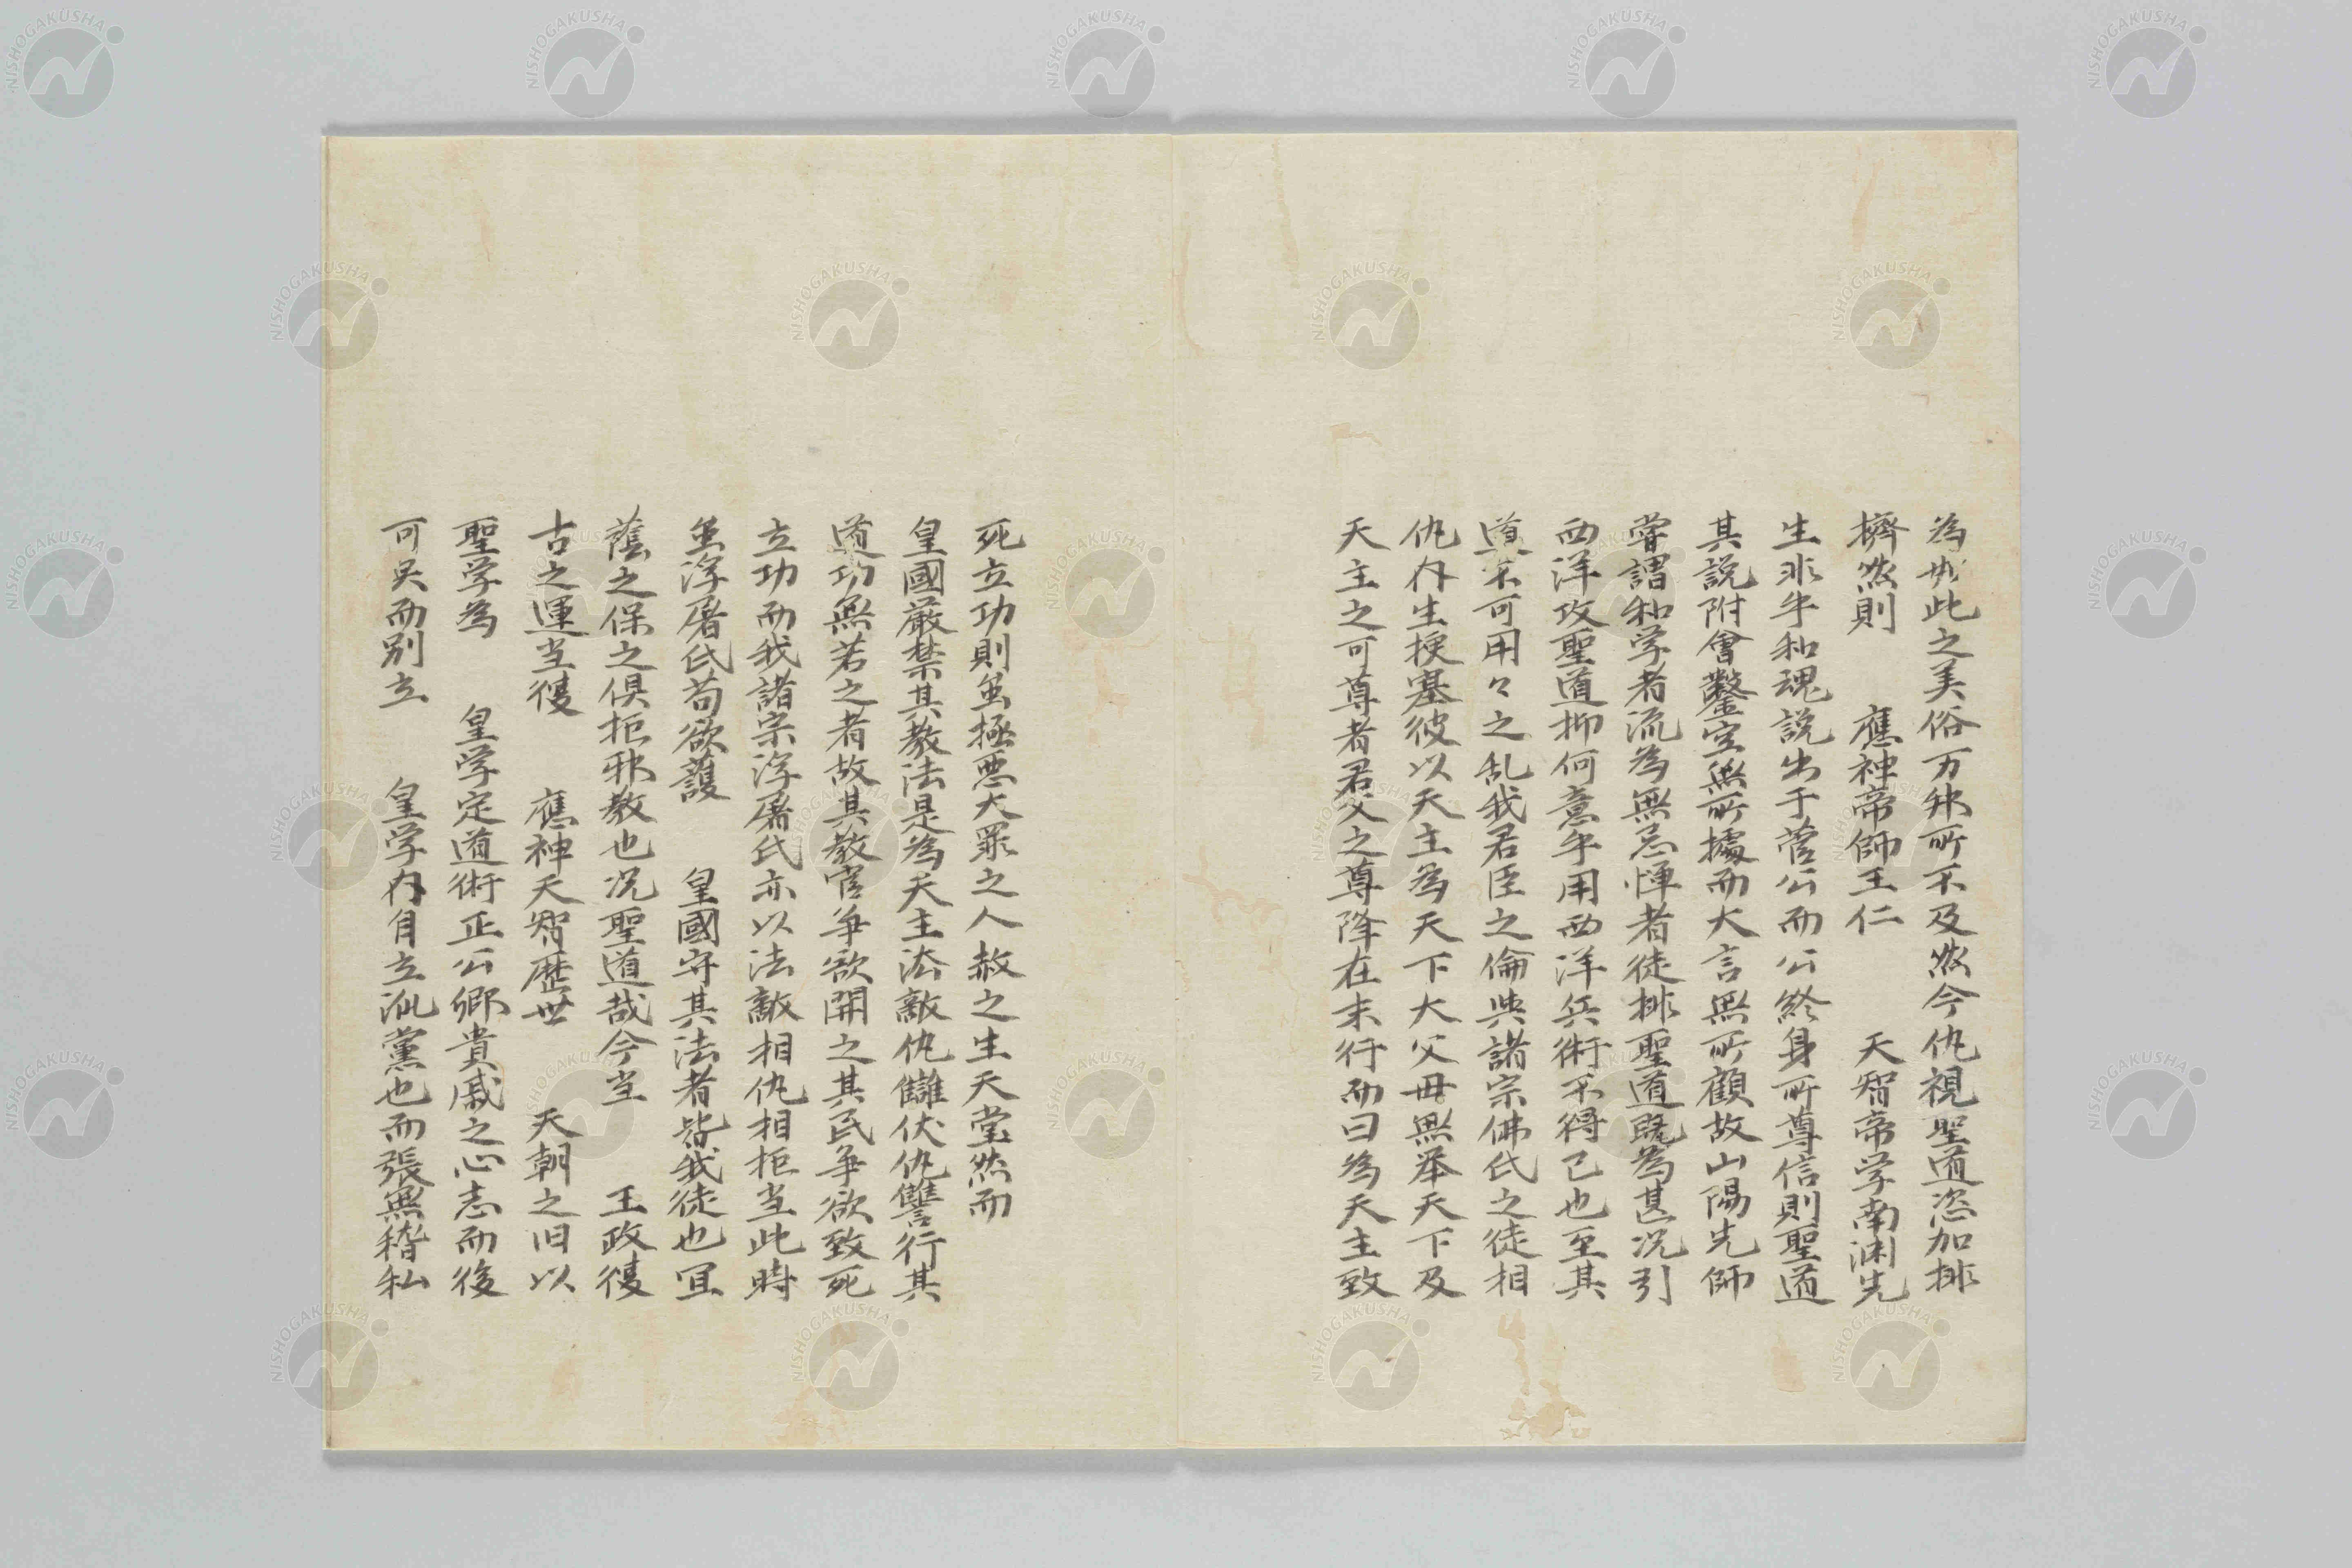 為此之美俗万邦所不及然今仇視聖道恣加排
擠然則　應神帝師王仁　天智帝学南淵先
生非乎和魂説出于菅公而公終身所尊信則聖道
其説附會鑿空無所據而大言無所顧故山陽先師
嘗謂和学者流為無忌憚者徒排聖道既為甚况引
西洋攻聖道抑何意乎用西洋兵術不得已也至其
道不可用々之乱我君臣之倫与諸宗佛氏之徒相
仇内生梗塞彼以天主為天下大父母無挙天下及
天主之可尊者君父之尊降在末行而曰為天主致
死立功則虽極悪大罪之人赦之生天堂然而
皇國厳禁其教法是為天主法敵仇讎伏仇讐行其
道功無若之者故其教官争欲開之其民争欲致死
立功而我諸宗浮屠氏亦以法敵相仇相拒当此時
虽浮屠氏苟欲護　皇國守其法者皆我徒也宜
蔭之保之倶拒邪教也况聖道哉今当　王政復
古之運当復　應神天智歴世　天朝之旧以
聖学為　皇学定道術正公卿貴戚之心志而後
可矣而別立　皇学内自立私黨也而張無稽私